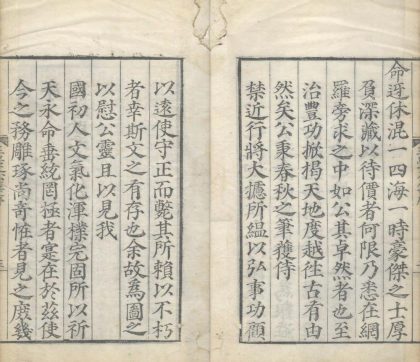 命迓休混一四海一時豪傑之士厚
負深藏以待價者何限乃悉在網
羅旁求之中如公其卓然者也至
治豐功掀揭天地度越往古有由
然矣公秉春秋之筆獲侍
禁近行將大攄所縕以弘事功顧
以遠使守正而斃其所賴以不朽
者幸斯文之有存也余故為圖之
以慰公靈且以見我
國初人文氣化渾樸完固所以祈
天永命垂統罔極者寔在於茲使
今之務雕琢尚奇恠者見之庶幾